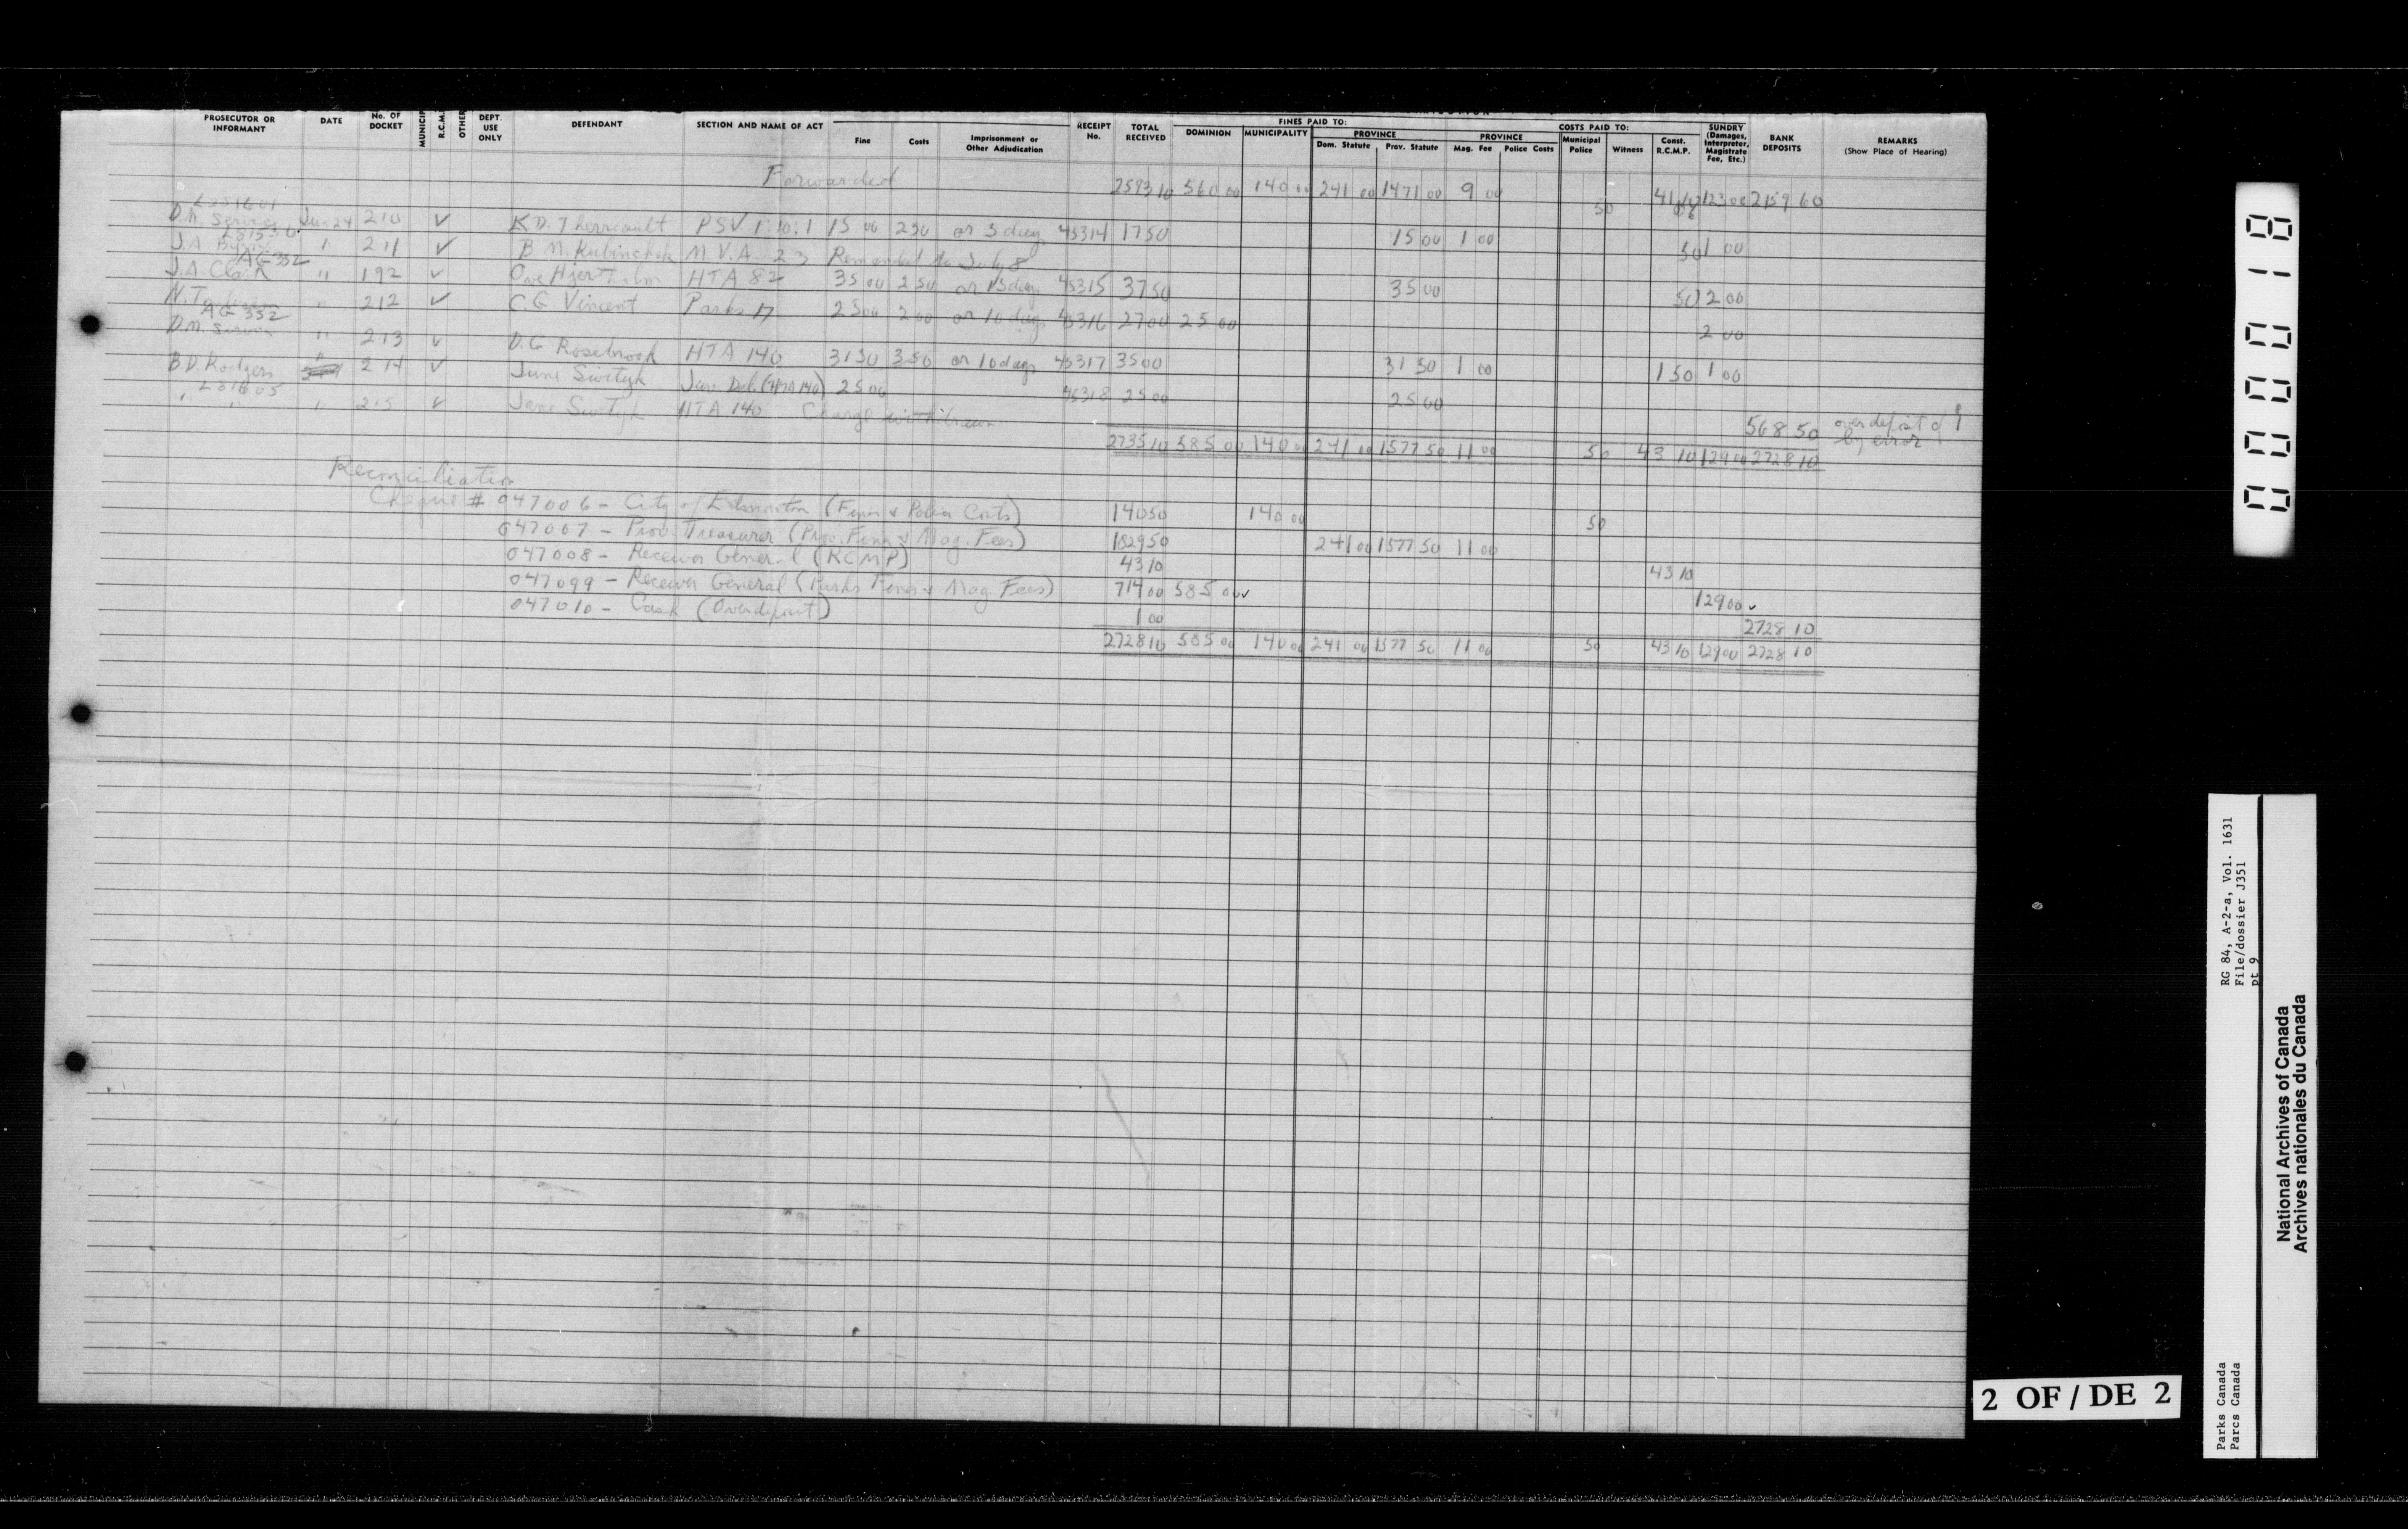 PROSECUTOR OR INFORMANT DATE No. OF DOCKET MUNICIP R.C.M. OTHER DEPT. USE ONLY DEFENDANT SECTION AND NAME OF ACT Fine Costs Imprisonment or Other Adjudication RECEIPT No. TOTAL RECEIVED FINES PAID TO: DOMINION MUNICIPALITY PROVINCE Dom. Statute Prov. Statute COSTS PAID TO: PROVINCE Mag. Fee Police Costs Municipal Police Witness Const. R.C.M.P. SUNDRY (Damages, Interpreter, Magistrate Fee, Etc.) BANK DEPOSITS REMARKS (Show Place of Hearing)
Forwarded 2593 10 560 00 140 00 241 00 1471 00 9 00 50 41 123 00 2159 60
D.M. Jun 24 210 ✓ K.D. Therreault PSV 1:10:1 15 00 2 50 or 3 days 45314 17 50 15 00 1 00 50 1 00
J.A. " 211 ✓ B. M. Kubinchak M.V.A. 23 Remanded to July 8
AG 332
J.A Clark " 192 ✓ Ove Hjertholm HTA 82 35 00 2 50 or 15 days 45315 37 50 35 00 50 2 00
N.T. " 212 ✓ C.G. Vincent Parks 17 25 00 2 00 or 10 days 45316 27 00 25 00 2 00
AG 332
D.M. " 213 ✓ D.G Rosebrook HTA 140 31 50 3 50 or 10 days 45317 35 00 31 50 1 00 1 50 1 00
B.D. Rodgers " 214 ✓ June Swityk Juv. Del. (HTA 140) 25 00 45318 25 00 25 00
L31605
" " " 215 ✓ June Swityk HTA 140 Charge withdrawn 568 50 over deposit of 1 by error
2735 10 585 00 140 00 241 00 1577 50 11 00 50 43 10 129 00 2728 10
Reconciliation
Cheque # 047006 - City of Edmonton (Fines & Police Costs) 140 50 140 00 50
047007 - Prov. Treasurer (Prov. Fines & Mag. Fees) 1829 50 241 00 1577 50 11 00
047008 - Receiver General (RCMP) 43 10 43 10
047099 - Receiver General (Parks Fines & Mag. Fees) 714 00 585 00 ✓ 129 00 ✓
047010 - Cash (Overdeposit) 1 00 2728 10
2728 10 585 00 140 00 241 00 1577 50 11 00 50 43 10 129 00 2728 10
000018
RG 84, A-2-a, Vol. 1631
File/dossier J351
pt 9
Parks Canada
Parcs Canada
National Archives of Canada
Archives nationales du Canada
2 OF / DE 2